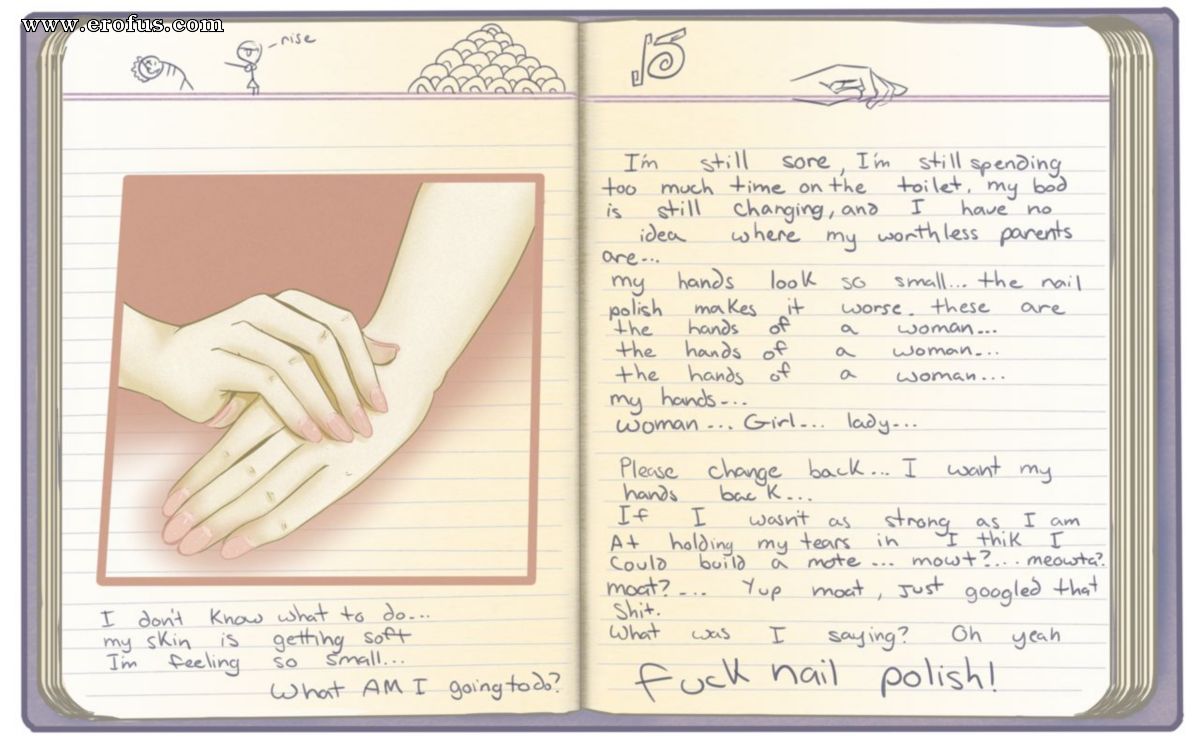 www.erofus.com
- rise
I don't know what to do...
my skin is getting soft
I'm feeling so small...
What AM I going to do?
15
I'm still sore, I'm still spending
too much time on the toilet, my bod
is still changing, and I have no
idea where my worthless parents
are...
my hands look so small... the nail
polish makes it worse. these are
the hands of a woman...
the hands of a woman...
the hands of a woman...
my hands...
woman... Girl... lady...
Please change back... I want my
hands back...
If I wasn't as strong as I am
At holding my tears in I thik I
Could build a mote... mowt?... meowta?
moat?... Yup moat, just googled that
Shit.
What was I saying? Oh yeah
fuck nail polish!